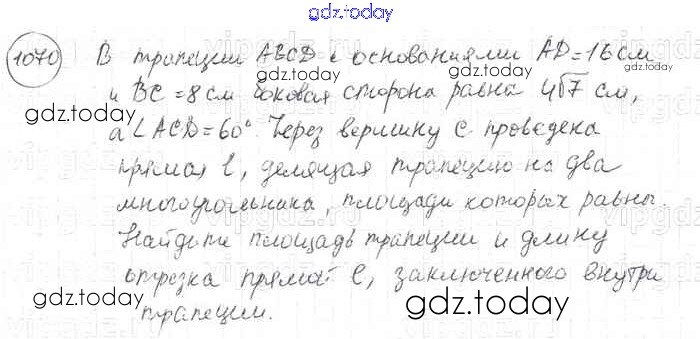 gdz.today
1070 В трапеции ABCD с основаниями AD=16см
и BC=8см боковая сторона равна 4√7 см,
gdz.today
а ∠ACD=60°. Через вершину C проведена
прямая l, делящая трапецию на два
многоугольника, площади которых равны.
Найдите площадь трапеции и длину
отрезка прямой l, заключенного внутри
gdz.today gdz.today
трапеции.